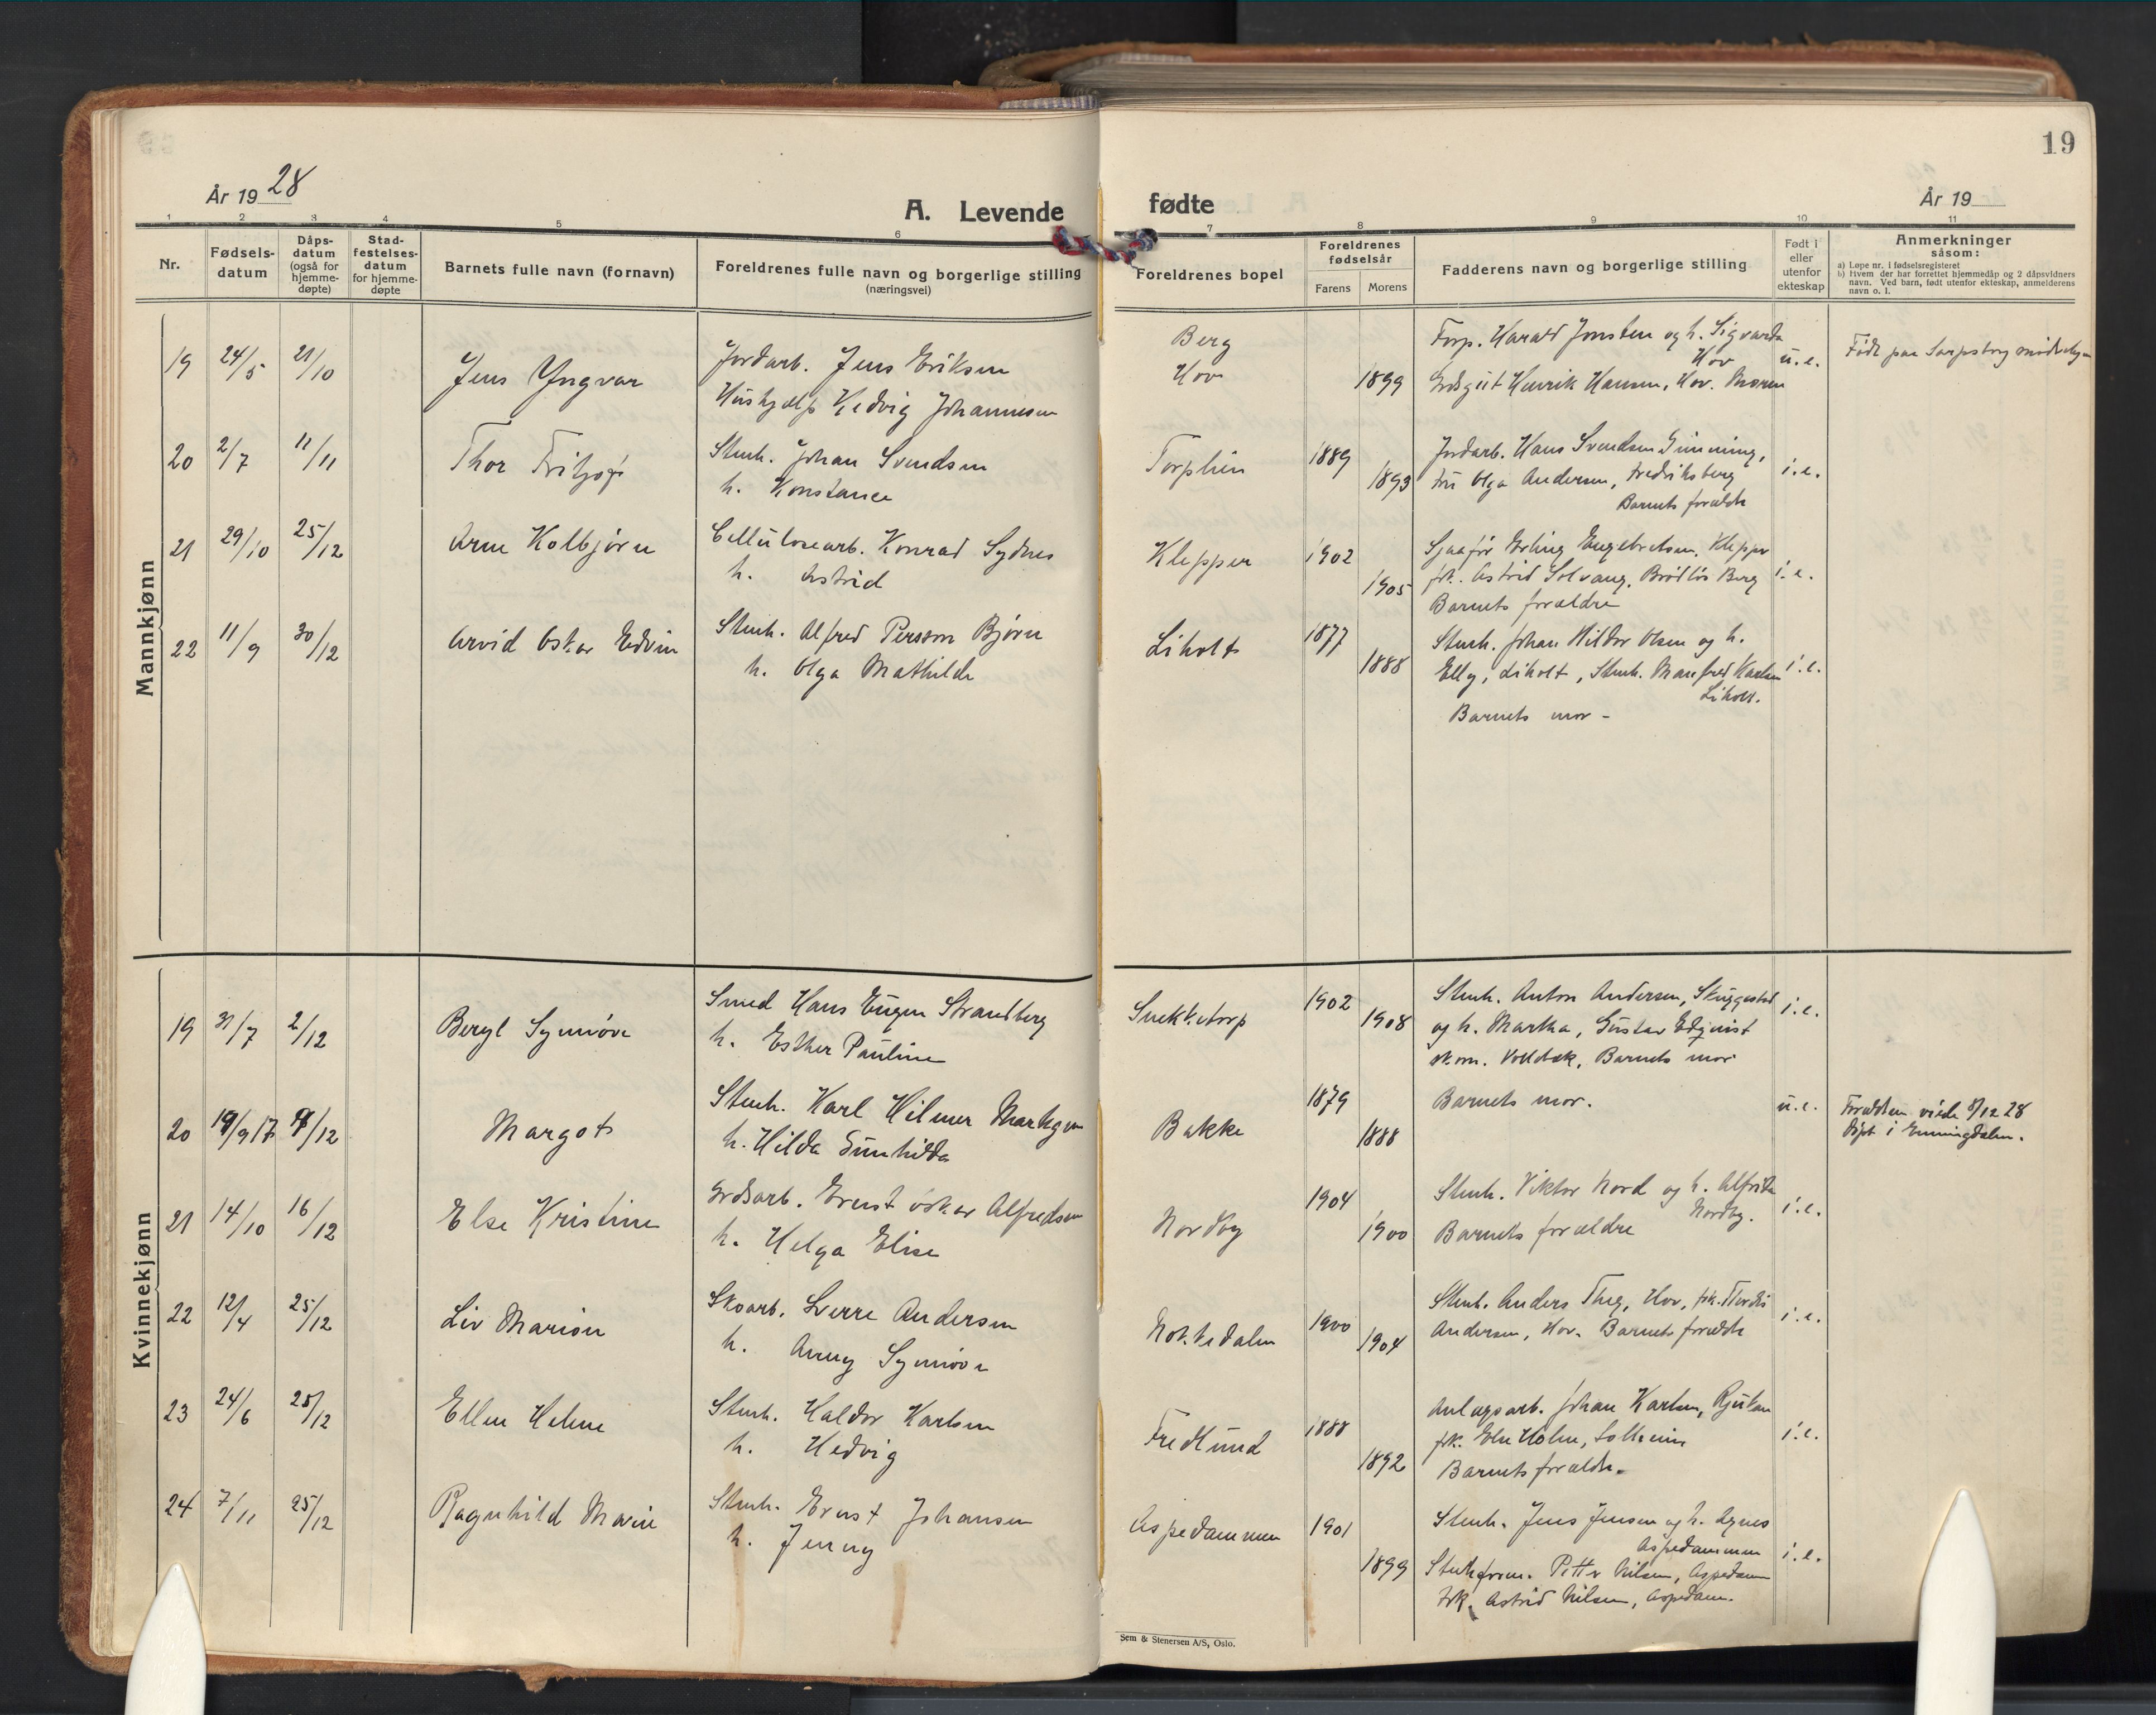 19
År 19 28
A. Levende fødte
År 19
1 2 3 4 5 6 7 8 9 10 11
Nr.
Fødsels-
datum
Dåps-
datum
(også for
hjemme-
døpte)
Stad-
festelses-
datum
for hjemme-
døpte
Barnets fulle navn (fornavn)
Foreldrenes fulle navn og borgerlige stilling
(næringsvei)
Foreldrenes bopel
Foreldrenes
fødselsår
Farens Morens
Fadderens navn og borgerlige stilling
Født i
eller
utenfor
ekteskap
Anmerkninger
såsom:
a) Løpe nr. i fødselsregisteret
b) Hvem der har forrettet hjemmedåp og 2 dåpsvidners
navn. Ved barn, født utenfor ekteskap, anmelderens
navn o. l.
Mannkjønn
19 24/5 21/10 Jens Yngvar
Jordarb. Jens Eriksen
Hushjælp Hedvig Johannesen
Berg
Hov
1899
Forp. Harald Jonsten og h. Sigvarda
Hov
Henrik Hansen, Hov. Moren
u.e.
Født paa Sarpsborg
20 2/7 11/11 Thor Fritjof
Stenh. Johan Svendsen
h. Konstance
Torplien
1889
1893
Jordarb. Hans Svendsen
fru Olga Andersen, Fredriksberg
Barnets forældre
i.e.
21 29/10 25/12 Arne Kolbjørn
Cellulosearb. Konrad Sydnes
h. Astrid
Klepper
1902
1905
Erling Engebretsen, Klepper
frk. Astrid Solvang, Brødløs Berg
Barnets forældre
i.e.
22 11/9 30/12 Arvid Oskar Edvin
Stenh. Alfred Persson Bjørn
h. Olga Mathilde
Liholt
1877
1888
Stenh. Johan Hildor Olsen og h.
Elly, Liholt, Stenh. Manfred Karlsen
Liholt.
Barnets mor -
i.e.
Kvinnekjønn
19 31/7 2/12 Beryl Synnøve
Smed Hans Eugen Strandberg
h. Esther Pauline
Snekketorp
1902
1908
Stenh. Anton Andersen, Skuggestad
og h. Martha, Gustav Edquist
Barnets mor
i.e.
20 19/9 17 9/12 Margot
Stenh. Karl Hilmer
h. Hilda Gunhilda
Bakke
1879
1888
Barnets mor.
u.e.
Forældren viede 8/12 28
Døpt i Enningdalen.
21 14/10 16/12 Else Kristine
Ernst Oskar Alfredsen
h. Helga Elise
Nordby
1904
1900
Stenh. Viktor Nord og h. Alfrida
Nordby.
Barnets forældre
i.e.
22 12/4 25/12 Liv Marion
Skoarb. Sverre Andersen
h. Anny Synnøve
Nokkedalen
1900
1904
Stenh. Anders Theg, Hov, frk. Thordis
Andersen, Hov. Barnets forældre
i.e.
23 24/6 25/12 Ellen Helene
Stenh. Haldor Karlsen
h. Hedvig
Fredlund
1888
1892
Anlægsarb. Johan Karlsen, Rjukan
frk. Else Holm, Solheim
Barnets forældre.
i.e.
24 7/11 25/12 Ragnhild Marie
Stenh. Ernst Johansen
h. Jenny
Aspedammen
1901
1899
Stenh. Jens Jensen og h. Agnes
Aspedammen
Stenhform. Petter Nilsen, Aspedam
frk. Astrid Nilsen, Aspedam.
i.e.
Sem & Stenersen A/S, Oslo.